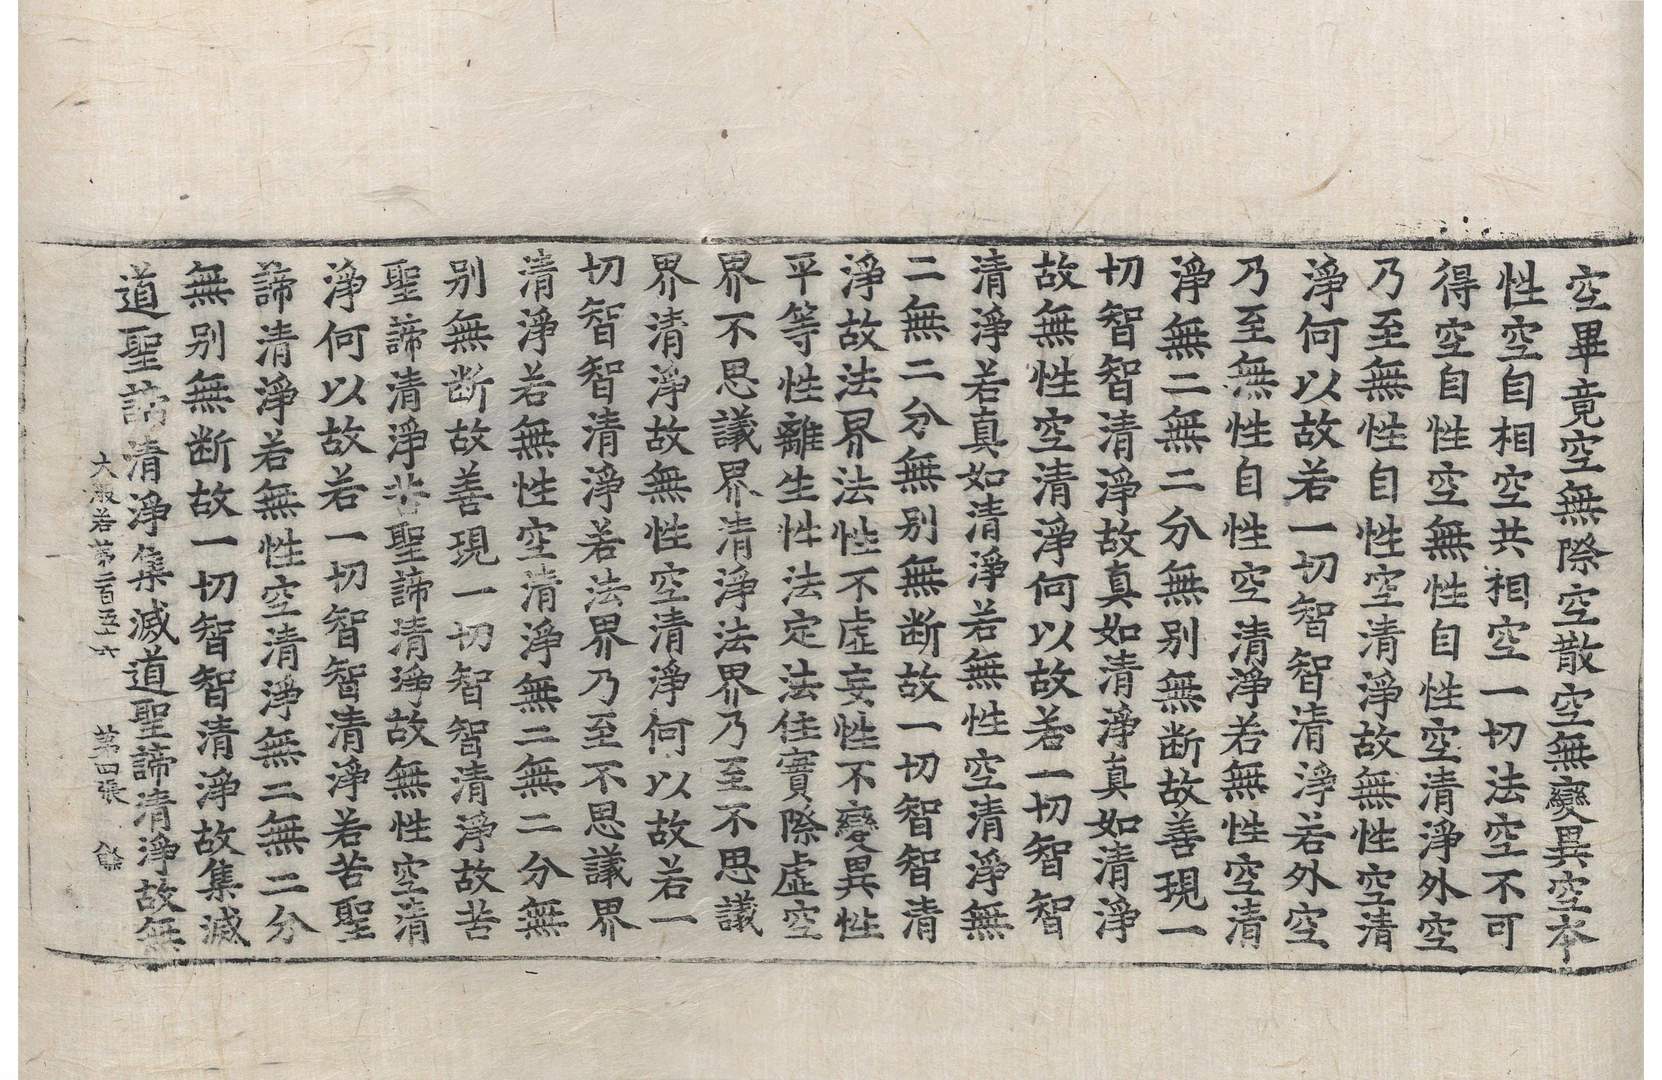 空畢竟空無際空散空無變異空本
性空自相空共相空一切法空不可
得空自性空無性自性空清淨外空
乃至無性自性空清淨故無性空清
淨何以故若一切智智清淨若外空
乃至無性自性空清淨若無性空清
淨無二無二分無別無断故善現一
切智智清淨故真如清淨真如清淨
故無性空清淨何以故若一切智智
清淨若真如清淨若無性空清淨無
二無二分無別無断故一切智智清
淨故法界法性不虛妄性不變異性
平等性離生性法定法住實際虛空
界不思議界清淨法界乃至不思議
界清淨故無性空清淨何以故若一
切智智清淨若法界乃至不思議界
清淨若無性空清淨無二無二分無
別無断故善現一切智智清淨故苦
聖諦清淨苦聖諦清淨故無性空清
淨何以故若一切智智清淨若苦聖
諦清淨若無性空清淨無二無二分
無別無断故一切智智清淨故集滅
道聖諦清淨集滅道聖諦清淨故無
大般若第二百五十六 第四張